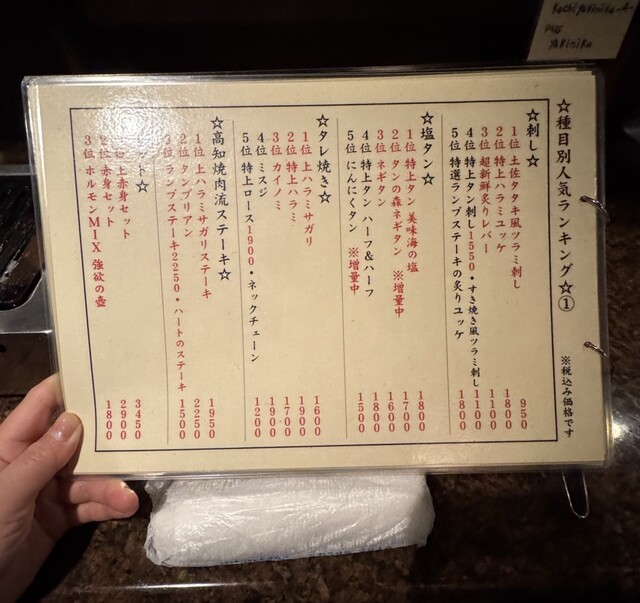 Kochi yakiniku-A-
yakiniku
☆種目別人気ランキング☆①
※税込み価格です
☆刺し☆
1位 土佐タタキ風ツラミ刺し 950
2位 特上ハラミユッケ 1800
3位 超新鮮炙りレバー 1100
4位 特上タン刺し1550・すき焼き風ツラミ刺し 1100
5位 特選ランプステーキの炙りユッケ 1800
☆塩タン☆
1位 特上タン 美味海の塩 1800
2位 タンの森ネギタン ※増量中 1700
3位 ネギタン 1600
4位 特上タン ハーフ&ハーフ 1800
5位 にんにくタン ※増量中 1500
☆タレ焼き☆
1位 上ハラミサガリ 1600
2位 特上ハラミ 1900
3位 カイノミ 1700
4位 ミスジ 1900
5位 特上ロース1900・ネックチェーン 1200
☆高知焼肉流ステーキ☆
1位 上ハラミサガリステーキ 1950
2位 タンブリアン 2250
3位 ランプステーキ2250・ハートのステーキ 1500
ット☆
上赤身セット 3450
2位 赤身セット 2900
3位 ホルモンMIX 強欲の壺 1800